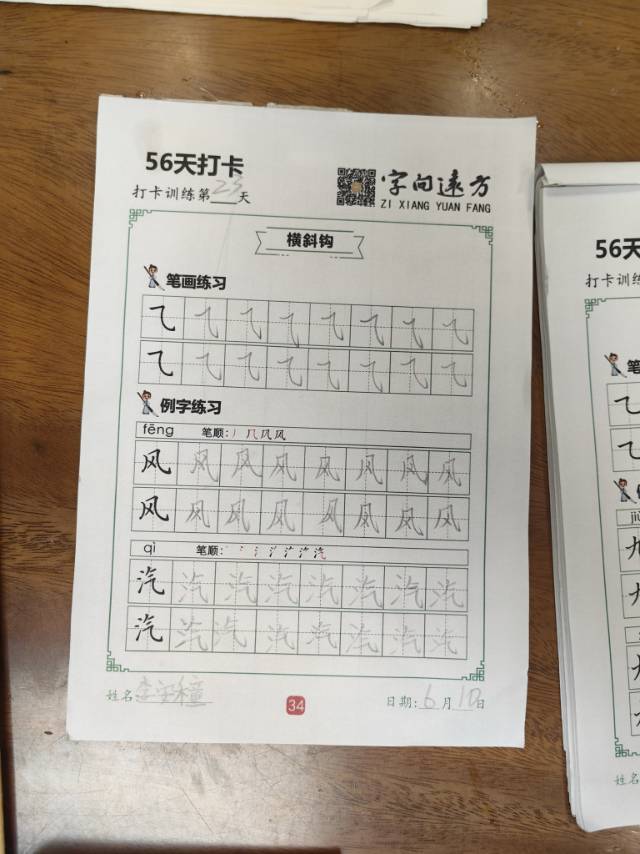 56天打卡
打卡训练第23天
字向远方
ZI XIANG YUAN FANG
横斜钩
笔画练习
㇈ ㇈ ㇈ ㇈ ㇈ ㇈ ㇈ ㇈
㇈ ㇈ ㇈ ㇈ ㇈ ㇈ ㇈ ㇈
例字练习
fēng 笔顺:
风 风 风 风 风 风 风 风
风 风 风 风 风 风 风 风
qì 笔顺:
汽 汽 汽 汽 汽 汽 汽 汽
汽 汽 汽 汽 汽 汽 汽 汽
姓名
34
日期:6月10日
56天
打卡训练
姓名